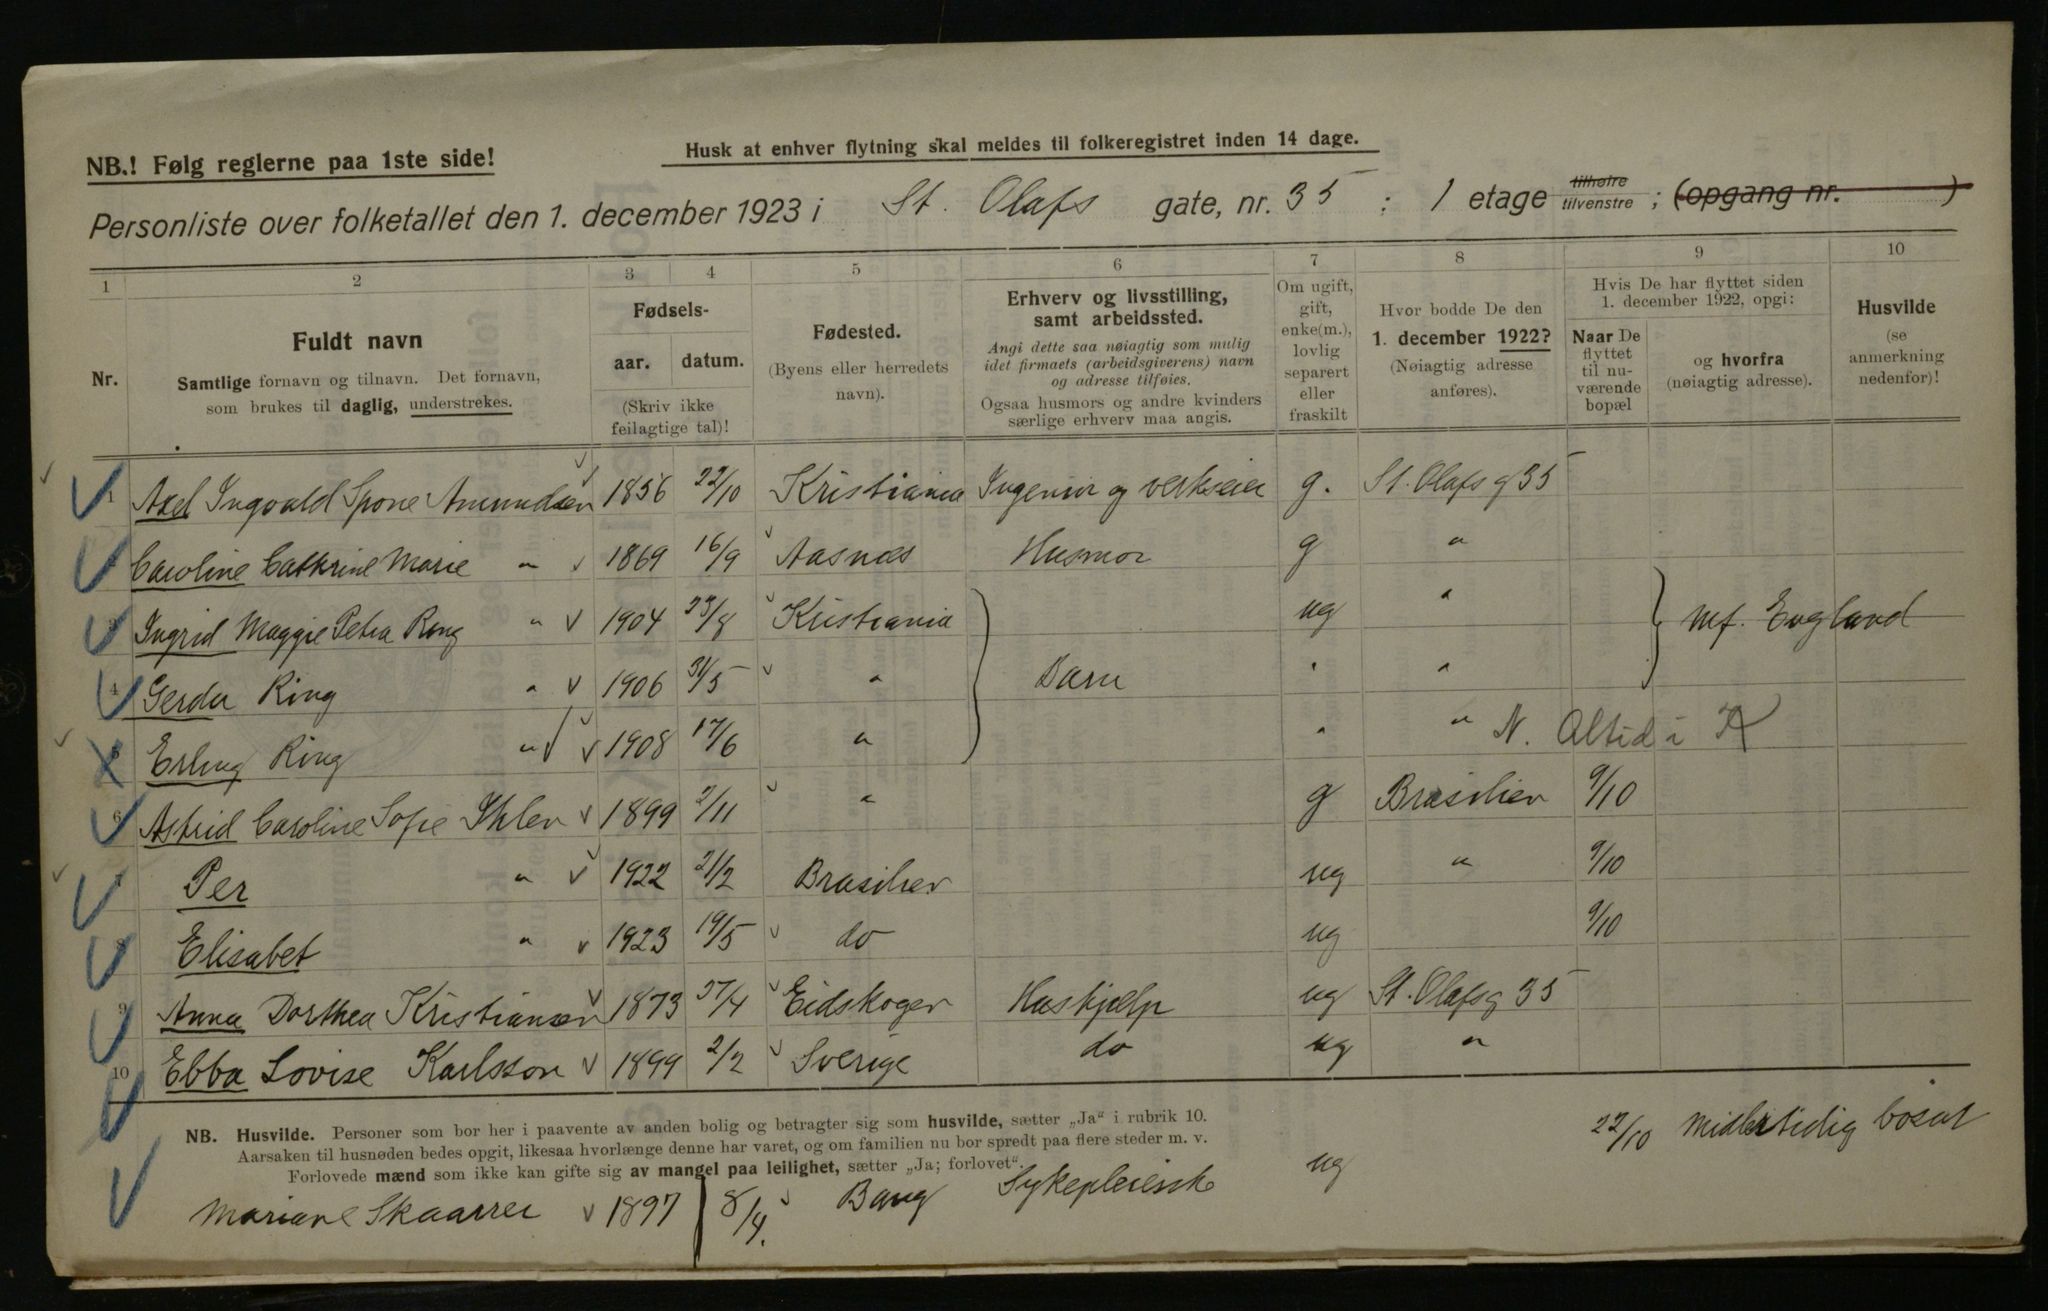 NB.! Følg reglerne paa 1ste side!
Husk at enhver flytning skal meldes til folkeregistret inden 14 dage.
Personliste over folketallet den 1. december 1923 i St. Olafs gate, nr. 35 : 1 etage tilhøire tilvenstre ; (opgang nr. )
1 2 3 4 5 6 7 8 9 10
Nr.
Fuldt navn
Samtlige fornavn og tilnavn. Det fornavn,
som brukes til daglig, understrekes.
Fødsels-
aar. datum.
(Skriv ikke
feilagtige tal)!
Fødested.
(Byens eller herredets
navn).
Erhverv og livsstilling,
samt arbeidssted.
Angi dette saa nøiagtig som mulig
idet firmaets (arbeidsgiverens) navn
og adresse tilføies.
Ogsaa husmors og andre kvinders
særlige erhverv maa angis.
Om ugift,
gift,
enke(m.),
lovlig
separert
eller
fraskilt
Hvor bodde De den
1. december 1922?
(Nøiagtig adresse
anføres).
Hvis De har flyttet siden
1. december 1922, opgi:
Naar De
flyttet
til nu-
værende
bopæl
og hvorfra
(nøiagtig adresse).
Husvilde
(se
anmerkning
nedenfor)!
1 Axel Ingvald Spone Amundsen 1856 22/10 Kristiania Ingeniør og verkseier g. St. Olafs g 35
Caroline Cathrine Marie " 1869 16/9 Aasnæs Husmor g "
3 Ingrid Maggie Petra Ring " 1904 23/8 Kristiania ug " England
4 Gerda Ring " 1906 31/5 " Barn " "
5 Erling Ring " 1908 17/6 " " " N. Altid i K
6 Astrid Caroline Sofie Ihlen 1899 2/11 " g Brasilien 9/10
7 Per " 1922 21/2 Brasilien ug " 9/10
8 Elisabet " 1923 19/5 do ug 9/10
9 Anna Dorthea Kristiansen 1873 27/4 Eidskogen Hushjælp ug St. Olafsg 35
10 Ebba Lovise Karlsson 1899 2/2 Sverige do ug "
NB. Husvilde. Personer som bor her i paavente av anden bolig og betragter sig som husvilde, sætter „Ja“ i rubrik 10.
Aarsaken til husnøden bedes opgit, likesaa hvorlænge denne har varet, og om familien nu bor spredt paa flere steder m. v.
Forlovede mænd som ikke kan gifte sig av mangel paa leilighet, sætter „Ja; forlovet“.
22/10 Midlertidig bosat
Mariane Skaarrer 1897 8/4. Bang Sykepleierske ug